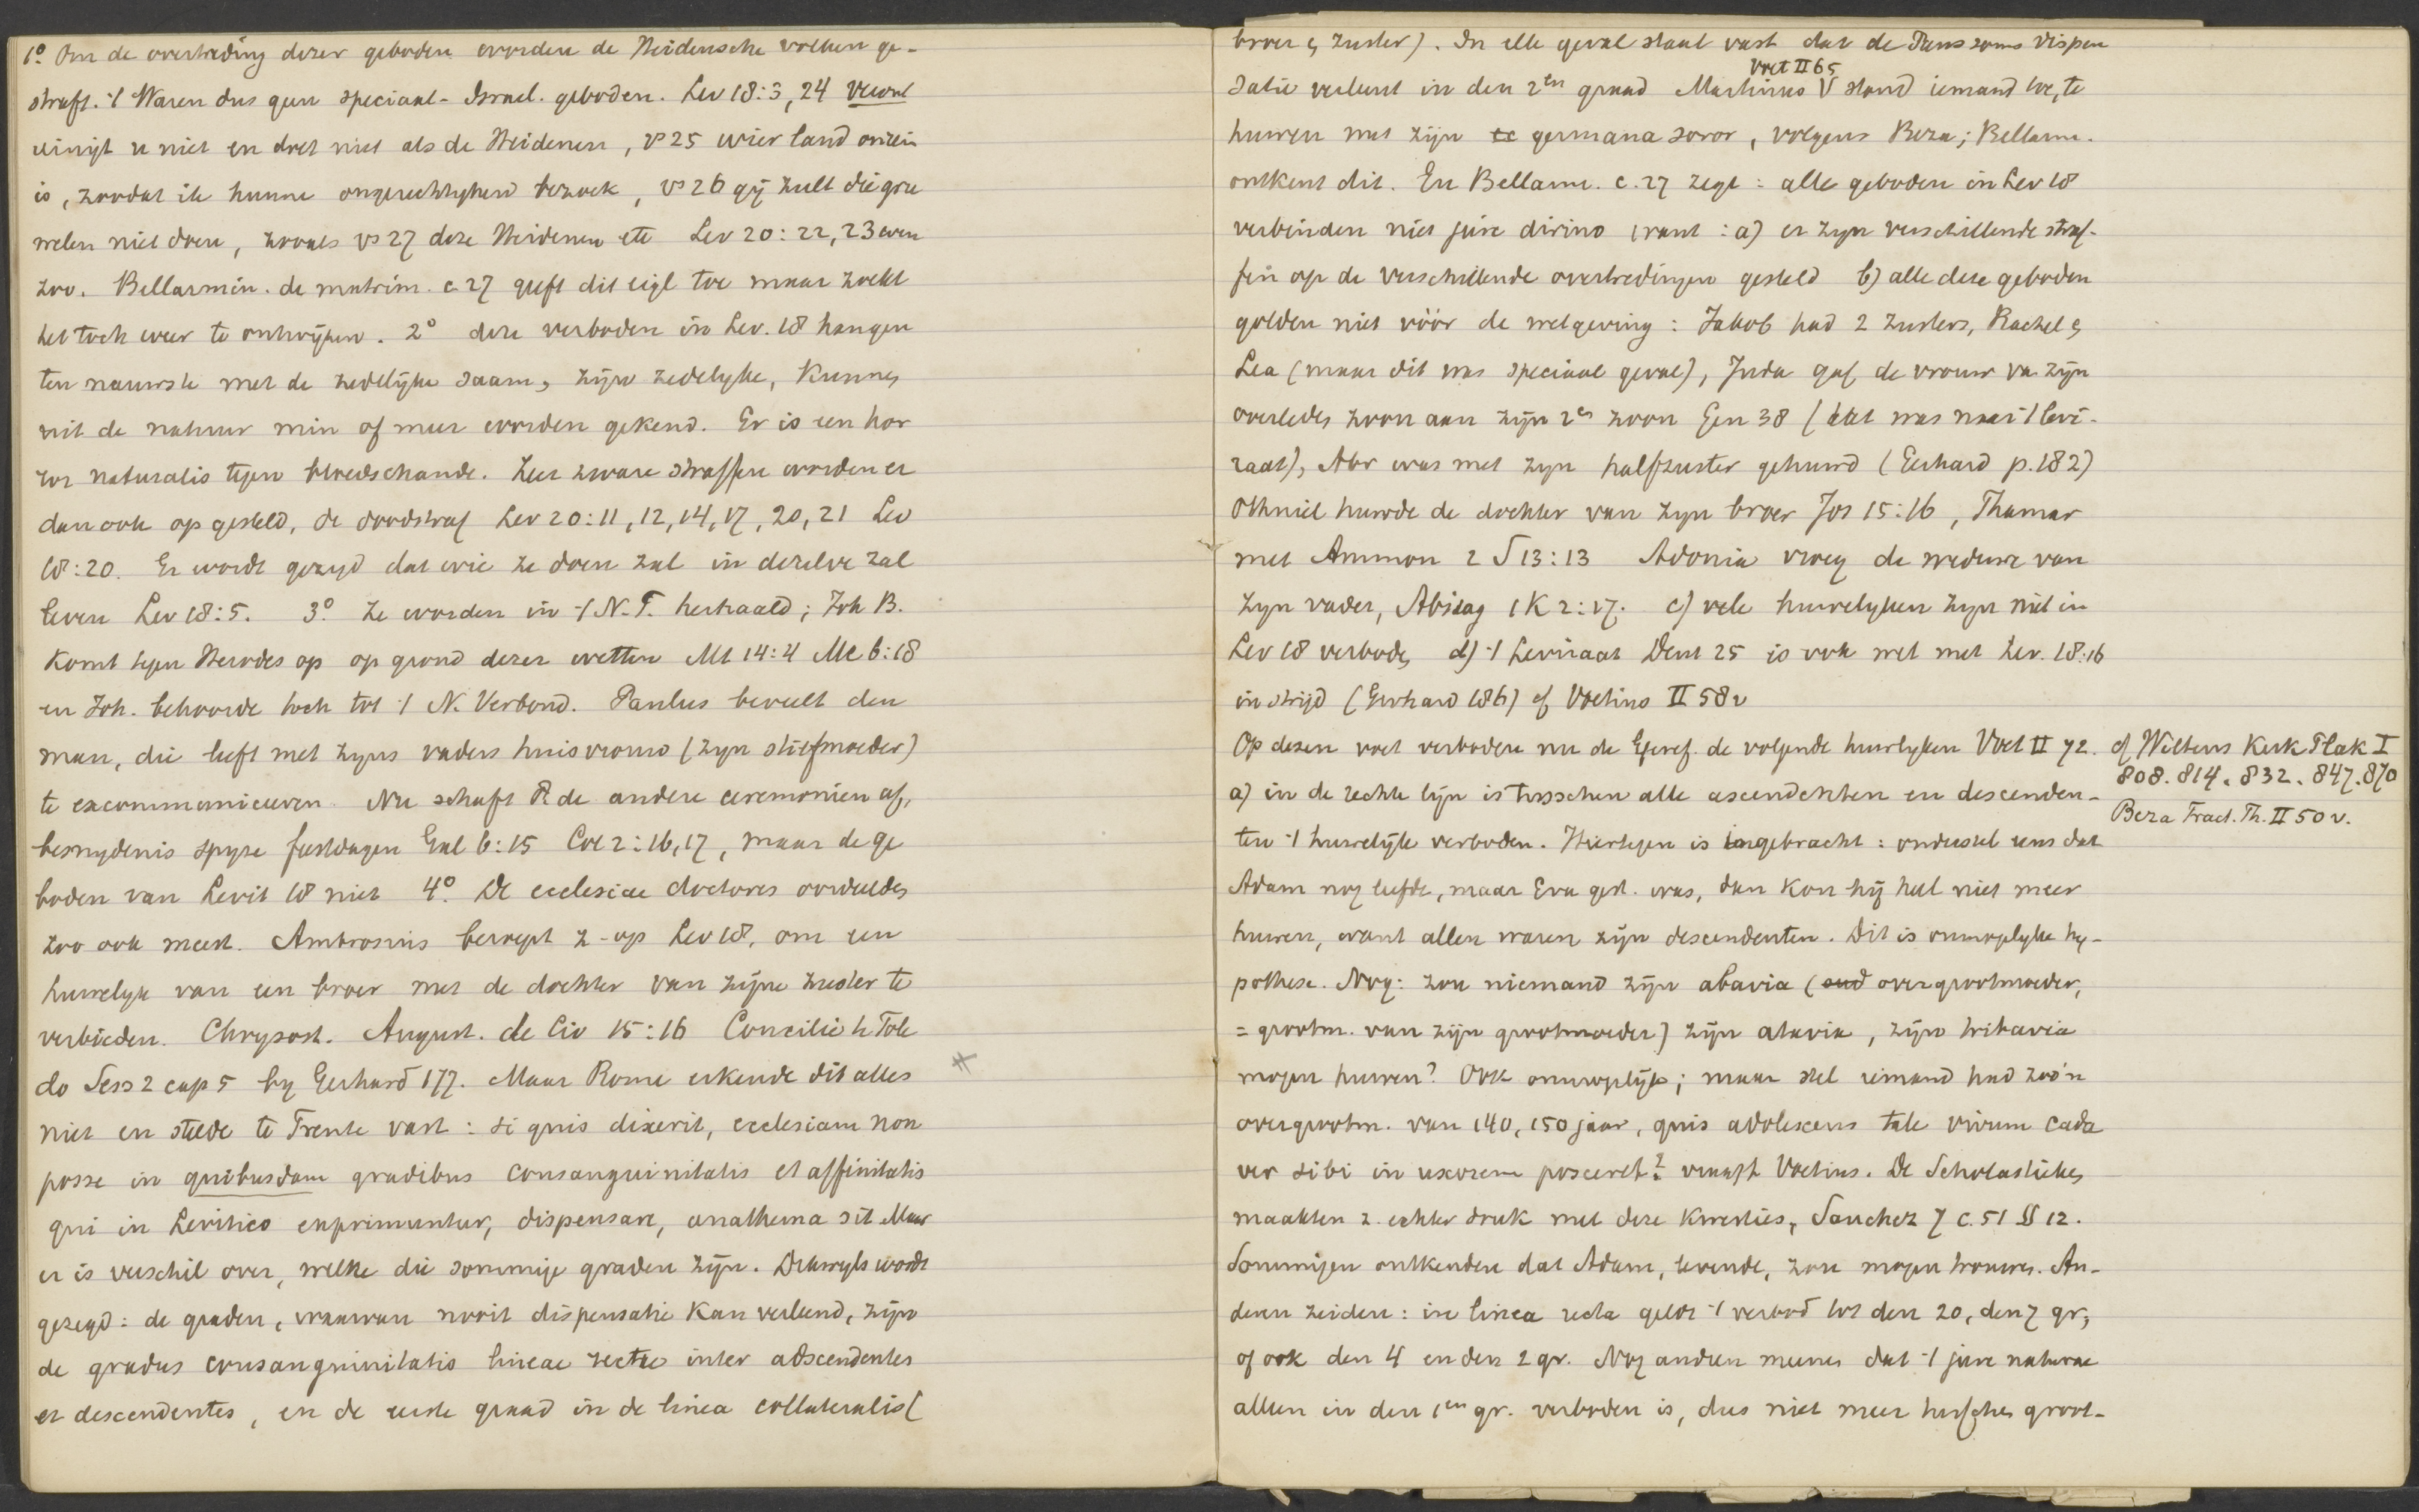 1º Om de overtreding dezer geboden worden de Heidensche volken ge-
straft. 't Waren dus geen speciaal-Israel. geboden. Lev 18:3, 24 veront
reinigt u niet en doet niet als de Heidenen, vs 25 wier land onrein
is, zoodat ik hunne ongerechtigheid bezoek, vs 26 gij zult die gru
welen niet doen, zooals vs 27 deze Heidenen etc Lev 20:22, 23 even
zoo. Bellarmin. de matrim. c. 27 geeft dit eigl toe maar zoekt
het toch weer te ontwijken. 2º deze verboden in Lev. 18 hangen
ten nauwste met de zedelijke saam, zijn zedelyke, kunnen
uit de natuur min of meer worden gekend. Er is een hor
ror naturalis tegen bloedschande. Zeer zware straffen worden er
dan ook op gesteld, de doodstraf Lev 20:11, 12, 14, 17, 20, 21 Lev
18:20. Er wordt gezegd dat wie ze doen zal in dezelve zal
leven Lev 18:5. 3º. Ze worden in 't N.T. herhaald; Joh B.
komt tegen Herodes op op grond dezer wetten Mt 14:4 Mc 6:18
en Joh. behoorde toch tot 't N. Verbond. Paulus beveelt den
man, die leeft met zyns vaders huisvrouw (zyn stiefmoeder)
te excommuniceeren. Nu schaft P. de andere ceremonien af,
besnydenis spyze feestdagen Gal 6:15 Col 2:16,17, maar de ge
boden van Levit 18 niet 4º. De ecclesiae doctores oordeelden
zoo ook meest. Ambrosius beroept z-op Lev 18, om een
huwelyk van een broer met de dochter van zijne zuster te
verbieden. Chrysost. August. de Civ 15:16 Concilie te Tole
do Sess 2 cap 5 by Gerhard 177. Maar Rome erkende dit alles
niet en stelde te Trente vast: si quis dixerit, ecclesiam non
posse in quibusdam gradibus consanguinitatis et affinitatis
qui in Levitico exprimuntur, dispensare, anathema sit Maar
er is verschil over, welke die sommige graden zijn. Dikwyls wordt
gezegd: de graden, waarvan nooit dispensatie kan verleend, zijn
de gradus consanguinitatis lineae rectae inter adscendentes
et descendentes, en de eerste graad in de linea collateralis (
broer en zuster). In elk geval staat vast dat de Paus soms dispen
Voet II 65
satie verleent in den 2en graad Martinus V stond iemand toe, te
huwen met zijn germana soror, volgens Beza; Bellarm.
ontkent dit. En Bellarm. c. 27 zegt: alle geboden in Lev 18
verbinden niet jure divino want: a) er zyn verschillende straf-
fen op de verschillende overtredingen gesteld b) alle deze geboden
golden niet vóór de wetgeving: Jakob had 2 zusters, Rachel en
Lea (maar dit was speciaal geval), Juda gaf de vrouw van zijn
overleden zoon aan zijn 2en zoon Gen 38 (dat was naar 't levi-
raat), Abr was met zyn halfzuster gehuwd (Gerhard p. 182)
Othniel huwde de dochter van zyn broer Jos 15:16, Thamar
met Ammon 2 S 13:13 Adonia vroeg de weduwe van
zyn vader, Abisag 1 K 2:17. c) vele huwelyken zyn niet in
Lev 18 verboden d) 't Leviraat Deut 25 is ook niet met Lev. 18:16
in strijd (Gerhard 186) cf Voetius II 58v
Op dezen voet verboden nu de Geref. de volgende huwlyken Voet II 72.
cf Wiltens Kerk Plak I
808. 814. 832. 847. 870
Beza Tract. Th. II 50 v.
a) in de rechte lijn is tusschen alle ascendenten en descenden-
ten 't huwelijk verboden. Hiertegen is ingebracht: ondersstel eens dat
Adam nog leefde, maar Eva gest. was, dan kon hij heel niet meer
huwen, want allen waren zijn descendenten. Dit is onmogelyke hy-
pothese. Nog: zou niemand zijn abavia (oud overgrootmoeder,
= grootm. van zijn grootmoeder) zijn atavia, zijn tritavia
mogen huwen? Ook onmogelijk; maar stel iemand had zoo'n
overgrootm. van 140, 150 jaar, quis adolescens tale vivum cada
ver sibi in uxorem posceret? vraagt Voetius. De Scholastieken
maakten z. echter druk met deze kwesties, Sanchez 7 c. 51 § 12.
Sommigen ontkenden dat Adam, levende, zou mogen trouwen. An-
deren zeiden: in linea recta geldt 't verbod tot den 20, den 7 gr,
of ook den 4 en den 2 gr. Nog anderen meenen dat 't jure naturae
alleen in den 1en gr. verboden is, dus niet meer tusschen groot-